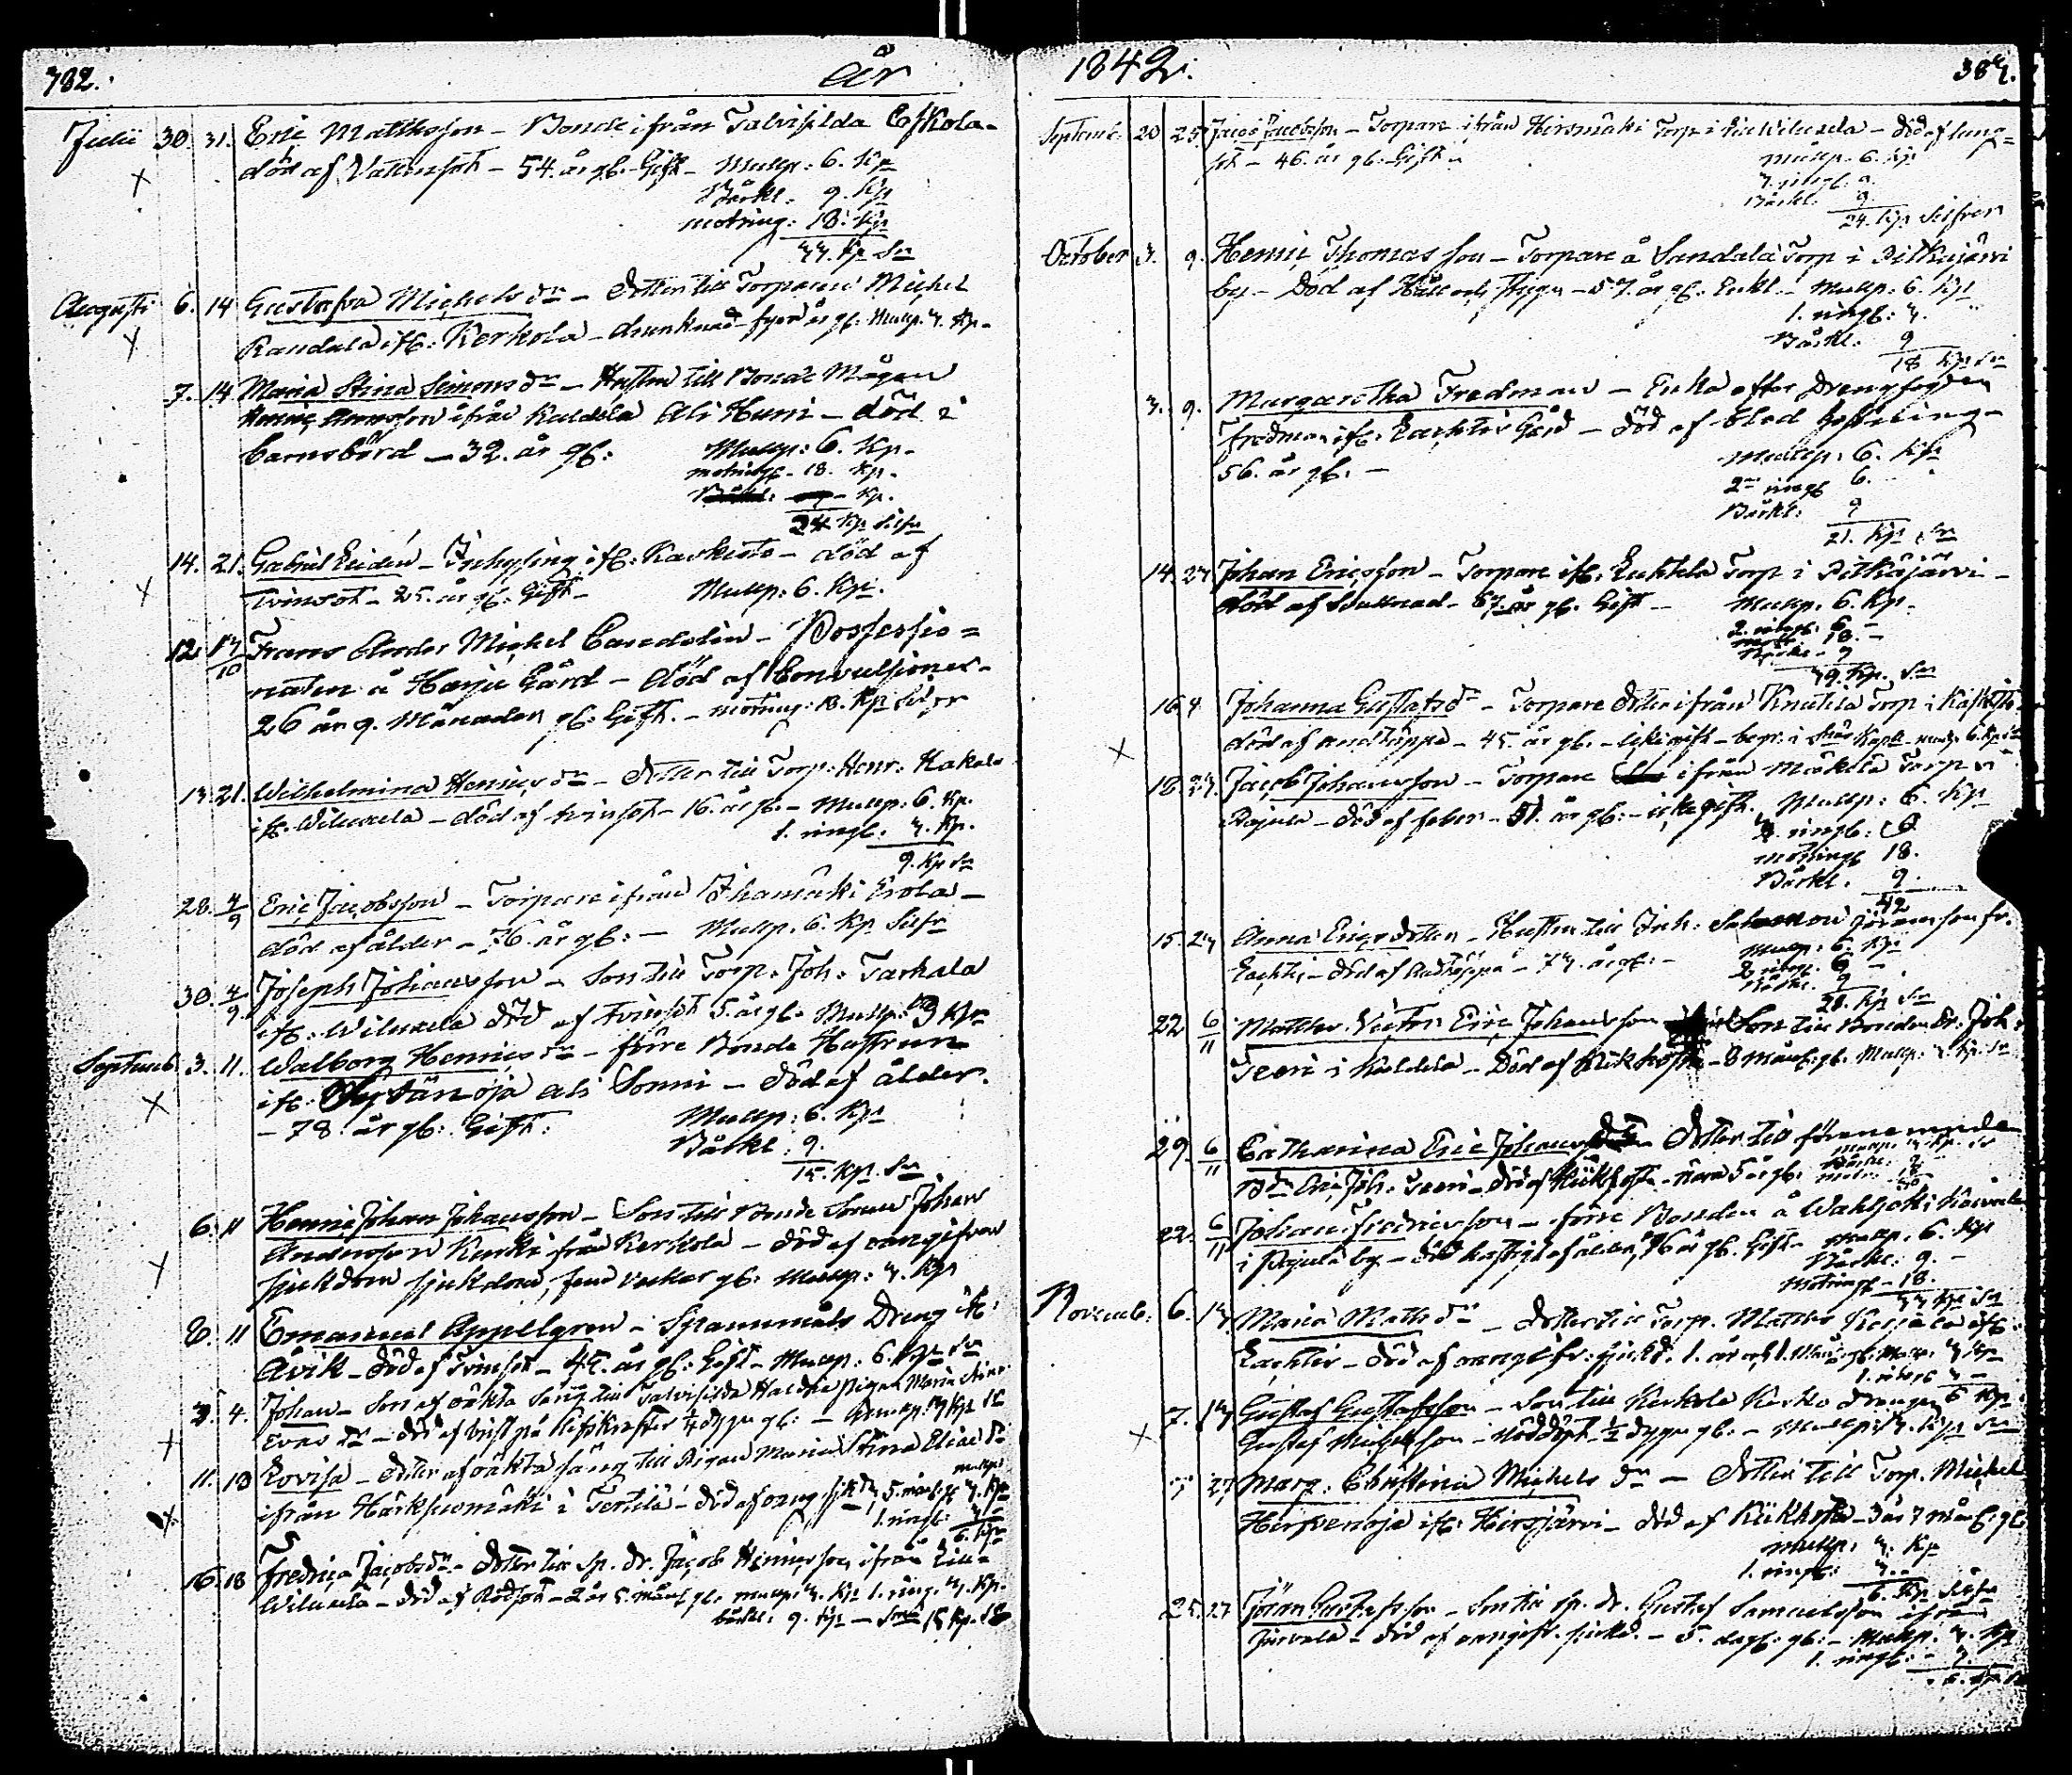 382. år
Julii 30. 31. Eric Matthsson - Bonde ifrån Talvisilda Eskola -
död af Vattusot - 54. år gl. Gift - Mullp: 6. Kp
Bårkl. 9. Kp
motring: 18. Kp
33. Kp Sr
Augusti 6. 14 Gustafva Michelsdr - Dotter till Torparen Michel
Randala ifr: Kerkola - gl. Mullp. 3. Kp -
7. 14 Maria Stina Simonsdr - Hustru till Bonde Mågen
ifrån Kuldela Ali Huni - död i
barnsbörd - 32. år gl: Mullp: 6. Kp -
motringl - 18. Kp -
Kp.
24 Kp Silfr
14. 21. Gabriel - Inhysing ifr: Karkisto - död af
tvinsot - 25. år gl. Gift - Mullp: 6. Kp.
12 17/10 Frans Michel - Possessio=
naten å Harju Gård - död af Convulsioner -
26 år 9. Månader gl: Gift. - motring: 18. Kp Silfr
13. 21. Wilhelmina Henricsdr - Dotter till Torp. Henr. Kakola
ifr. Wiluxela - död af tvinsot - 16. år gl. - Mullp: 6. Kp.
1. ringl. 3. Kp.
9. Kp Sr
28. 4/9 Eric Jacobsson - Torpare ifrån Ihamäki Erola -
död af ålder - 76. år gl: - Mullp. 6. Kp Silfr
30. 4/9 Joseph Johansson - Son till Torp. Joh. Tarkala
ifr: Wiluxela död af tvinsot 5. år gl. Mullp: 3 Kp
Septemb. 3. 11. Walborg Henricsdr - förre Bonde Hustrun
ifr: Sytänoja ali Sonni - död af ålder.
- 78. år gl: Gift: Mullp: 6. Kp
Bårkl: 9.
15. Kp. Sr
6. 11 Henric Johan Johansson - Son till Bonde Sonen Johan
Andersson Kurki från Kerkola - död af oangifven
sjukdom sjukdom, fem veckor gl: Mullp: 3. Kp
8. 11 Emanuel Appelgren - Spannmåls Dreng ifr:
Åvik - död af Tvinsot - 45. år gl: Gift - Mullp: 6. Kp Sr
3. 4. Johan - Son af oäkta säng till Talvisilda pigan Maria Stina
dr - död af brist på lifskrafter 1/4 dygn gl: - Mullp. 3 Kp Sr
11. 18 Lovisa - dotter af oäkta säng till Pigan Maria Stina Eliædr
ifrån i Terttilä - död af oang. sjukd, 5. mån. gl 3. Kp
1. ringl: 3
6. Kp
16. 18 Fredrica Jacobsdr - Dotter till Sp. dr. Jacob Henricsson ifrån Liu=
Wiluxela - död af Rödsot - 2 år 5. mån. gl. mullp. 3. Kp 1. ring. 3. Kp.
bårkl: 9. Kp - 15 Kp. Sr
1842. 383.
Septemb. 20 25. Jacob Jacobsson - Torpare ifrån Hirsmäki Torp i - död af lung=
sot - 46. år gl. Gift. Mullp. 6. Kp
3. ringl. 9.
Bårkl. 9.
24. Kp Silfver
October 3. 9. Henric Thomasson - Torpare å Sandala Torp i Pitkäjärvi
by - Död af Håll och Styng - 57. år gl. Enkl. - Mullp: 6. Kp
1. ringl: 3.
Bårkl. 9
18 Kp Sr
3. 9. Margaretha Fredman - Enka efter Drengfogden
Fredman ifr: Gård - död af blod -
56. år gl. - Mullp. 6. Kp
2ne ringl 6.
Bårkl: 9
21. Kp Sr
14. 23 Johan Ericsson - Torpare ifr. Torp i Pitkäjärvi -
död af - 67. år gl. Gift - Mullp. 6. Kp -
2. ringl: 6 -
18. -
Bårkl - 9
39. Kp. Sr
16. Johanna Gustafsdr - Torpare dotter ifrån Knutila Torp i
död af andtäppa - 45. år gl. - icke gift - begr: i
18. 23. Jacob Johansson - Torpare ifrån Mäkelä Torp i
Rajula - död af feber - 51. år gl: - icke gift. Mullp: 6. Kp
3. ringl: 9
motringl 18.
Bårkl. 9.
42
15. 23 Anna Ericsdotter - Hustru till Inh: Salomon Göransson fr.
- död af Andtäppa - 73. år gl: - Mullp. 6. Kp
2 ringl. 6 -
Bårkl. 9
21. Kp Sr
22 6/11 Matths Victor Eric Johansson Son till Bonden Er. Joh.
Seeri i Kuldela - Död af Kikhosta - 8 mån. gl. Mullp. 3. Kp. Sr
29. 6/11 Catharina Eric Johansdr Dotter till förenemnde
Bdn Eric Joh. Seeri - död af Kikhosta - 5 år gl: Mullp. 3. Kp. Sr
22. 6/11 Johan Fredricsson - förre Bonden å Wahljoki
i Rajula by - död hastigt af ålder, 76 år gl. Gift - Mullp. 6. Kp
Bårkl: 9. -
Motringl - 18.
33 Kp Sr
Novemb. 6. 13. Maria Mattsdr - Dotter till Torp. Matths ifr:
- död af oangifv: sjukd. 1. år och 1. Mån: gl: Mullp. 3 Kp
1. ringl 3 -
6 Kp
7. 13 Gustaf Gustafsson - Son till Kerkola drengen
Gustaf Michelsson - nöddöpt - 1/2 dygn gl. - Mullp: 3. Kp Sr
27 Marg: Christina Michelsdr - Dotter till Torp. Michel
Hirsvenoja ifr: Hirsjärvi - död af Kikhosta - 3 år 7 mån: gl
Mullp. 3. Kp
1. ringl: 3. -
6. Kp Silfr
25. 27 Göran Gustafsson - Son till sp. dr. Gustaf Samuelsson ifrån
Järvelä - död af oangifv. sjukd. - 5. dag: gl: - Mullp. 3. Kp
1. ringl: - 3.
6. Kp